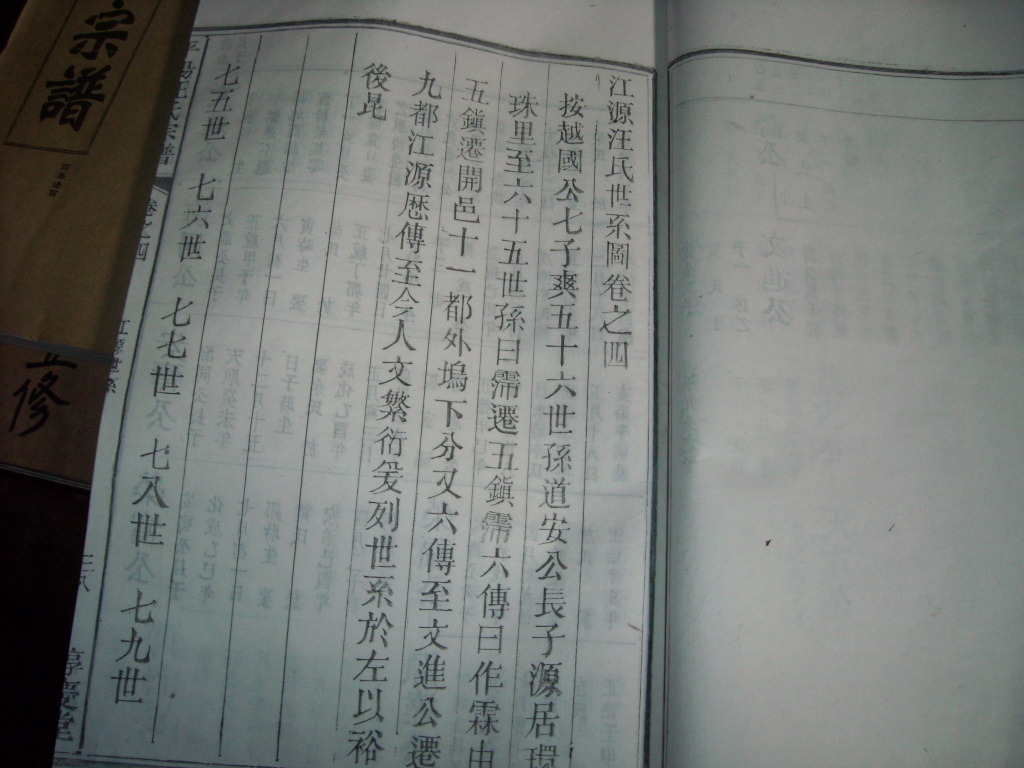 江源汪氏世系圖卷之四
按越國公七子爽五十六世孫道安公長子源居環
珠里至六十五世孫曰霈遷五鎮霈六傳曰作霖由
五鎮遷開邑十一都外塢下分又六傳至文進公遷
九都江源歷傳至今人文繁衍爰列世系於左以裕
後昆
七五世 七六世 七七世 七八世 七九世
汪氏宗譜 卷之四
宗譜
五修